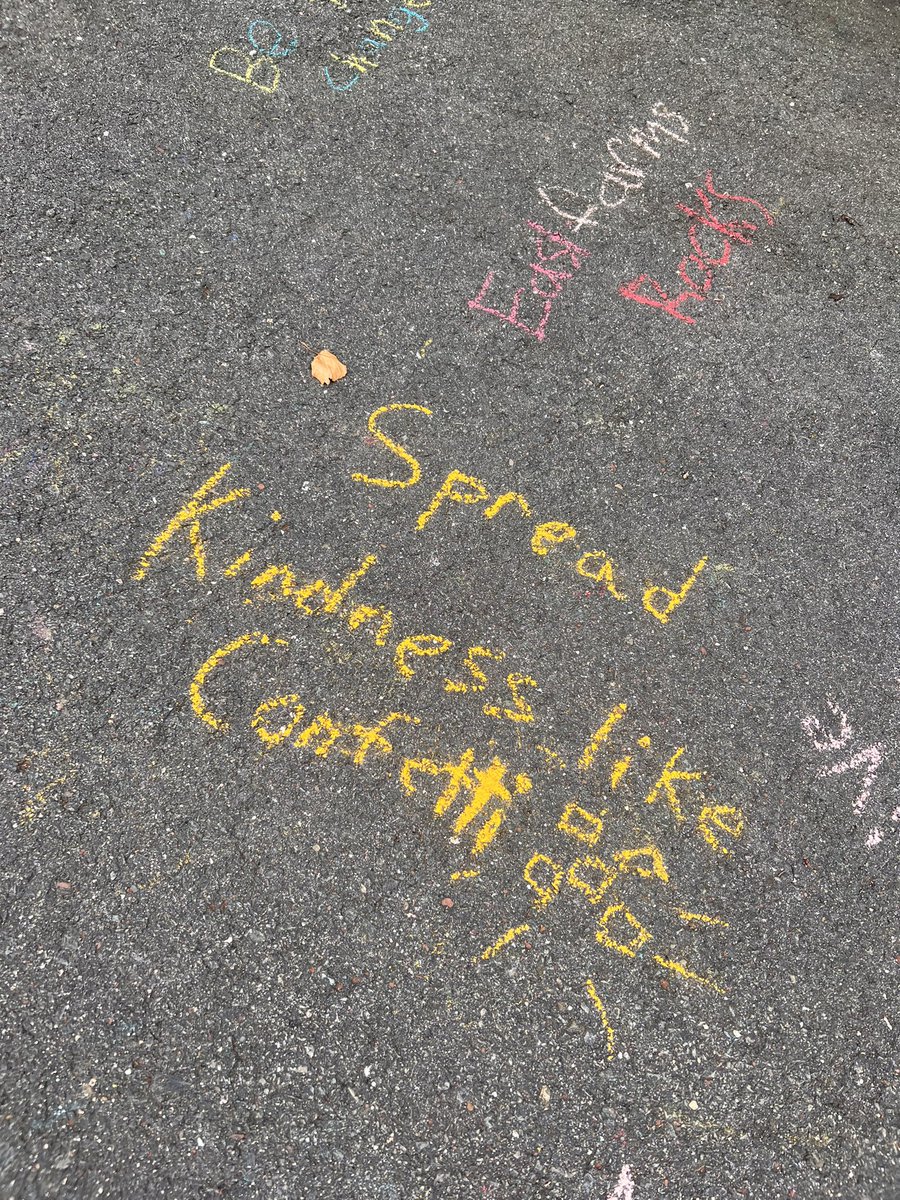 Be
Change
East farms
Rocks
Spread
Kindness like
Confetti